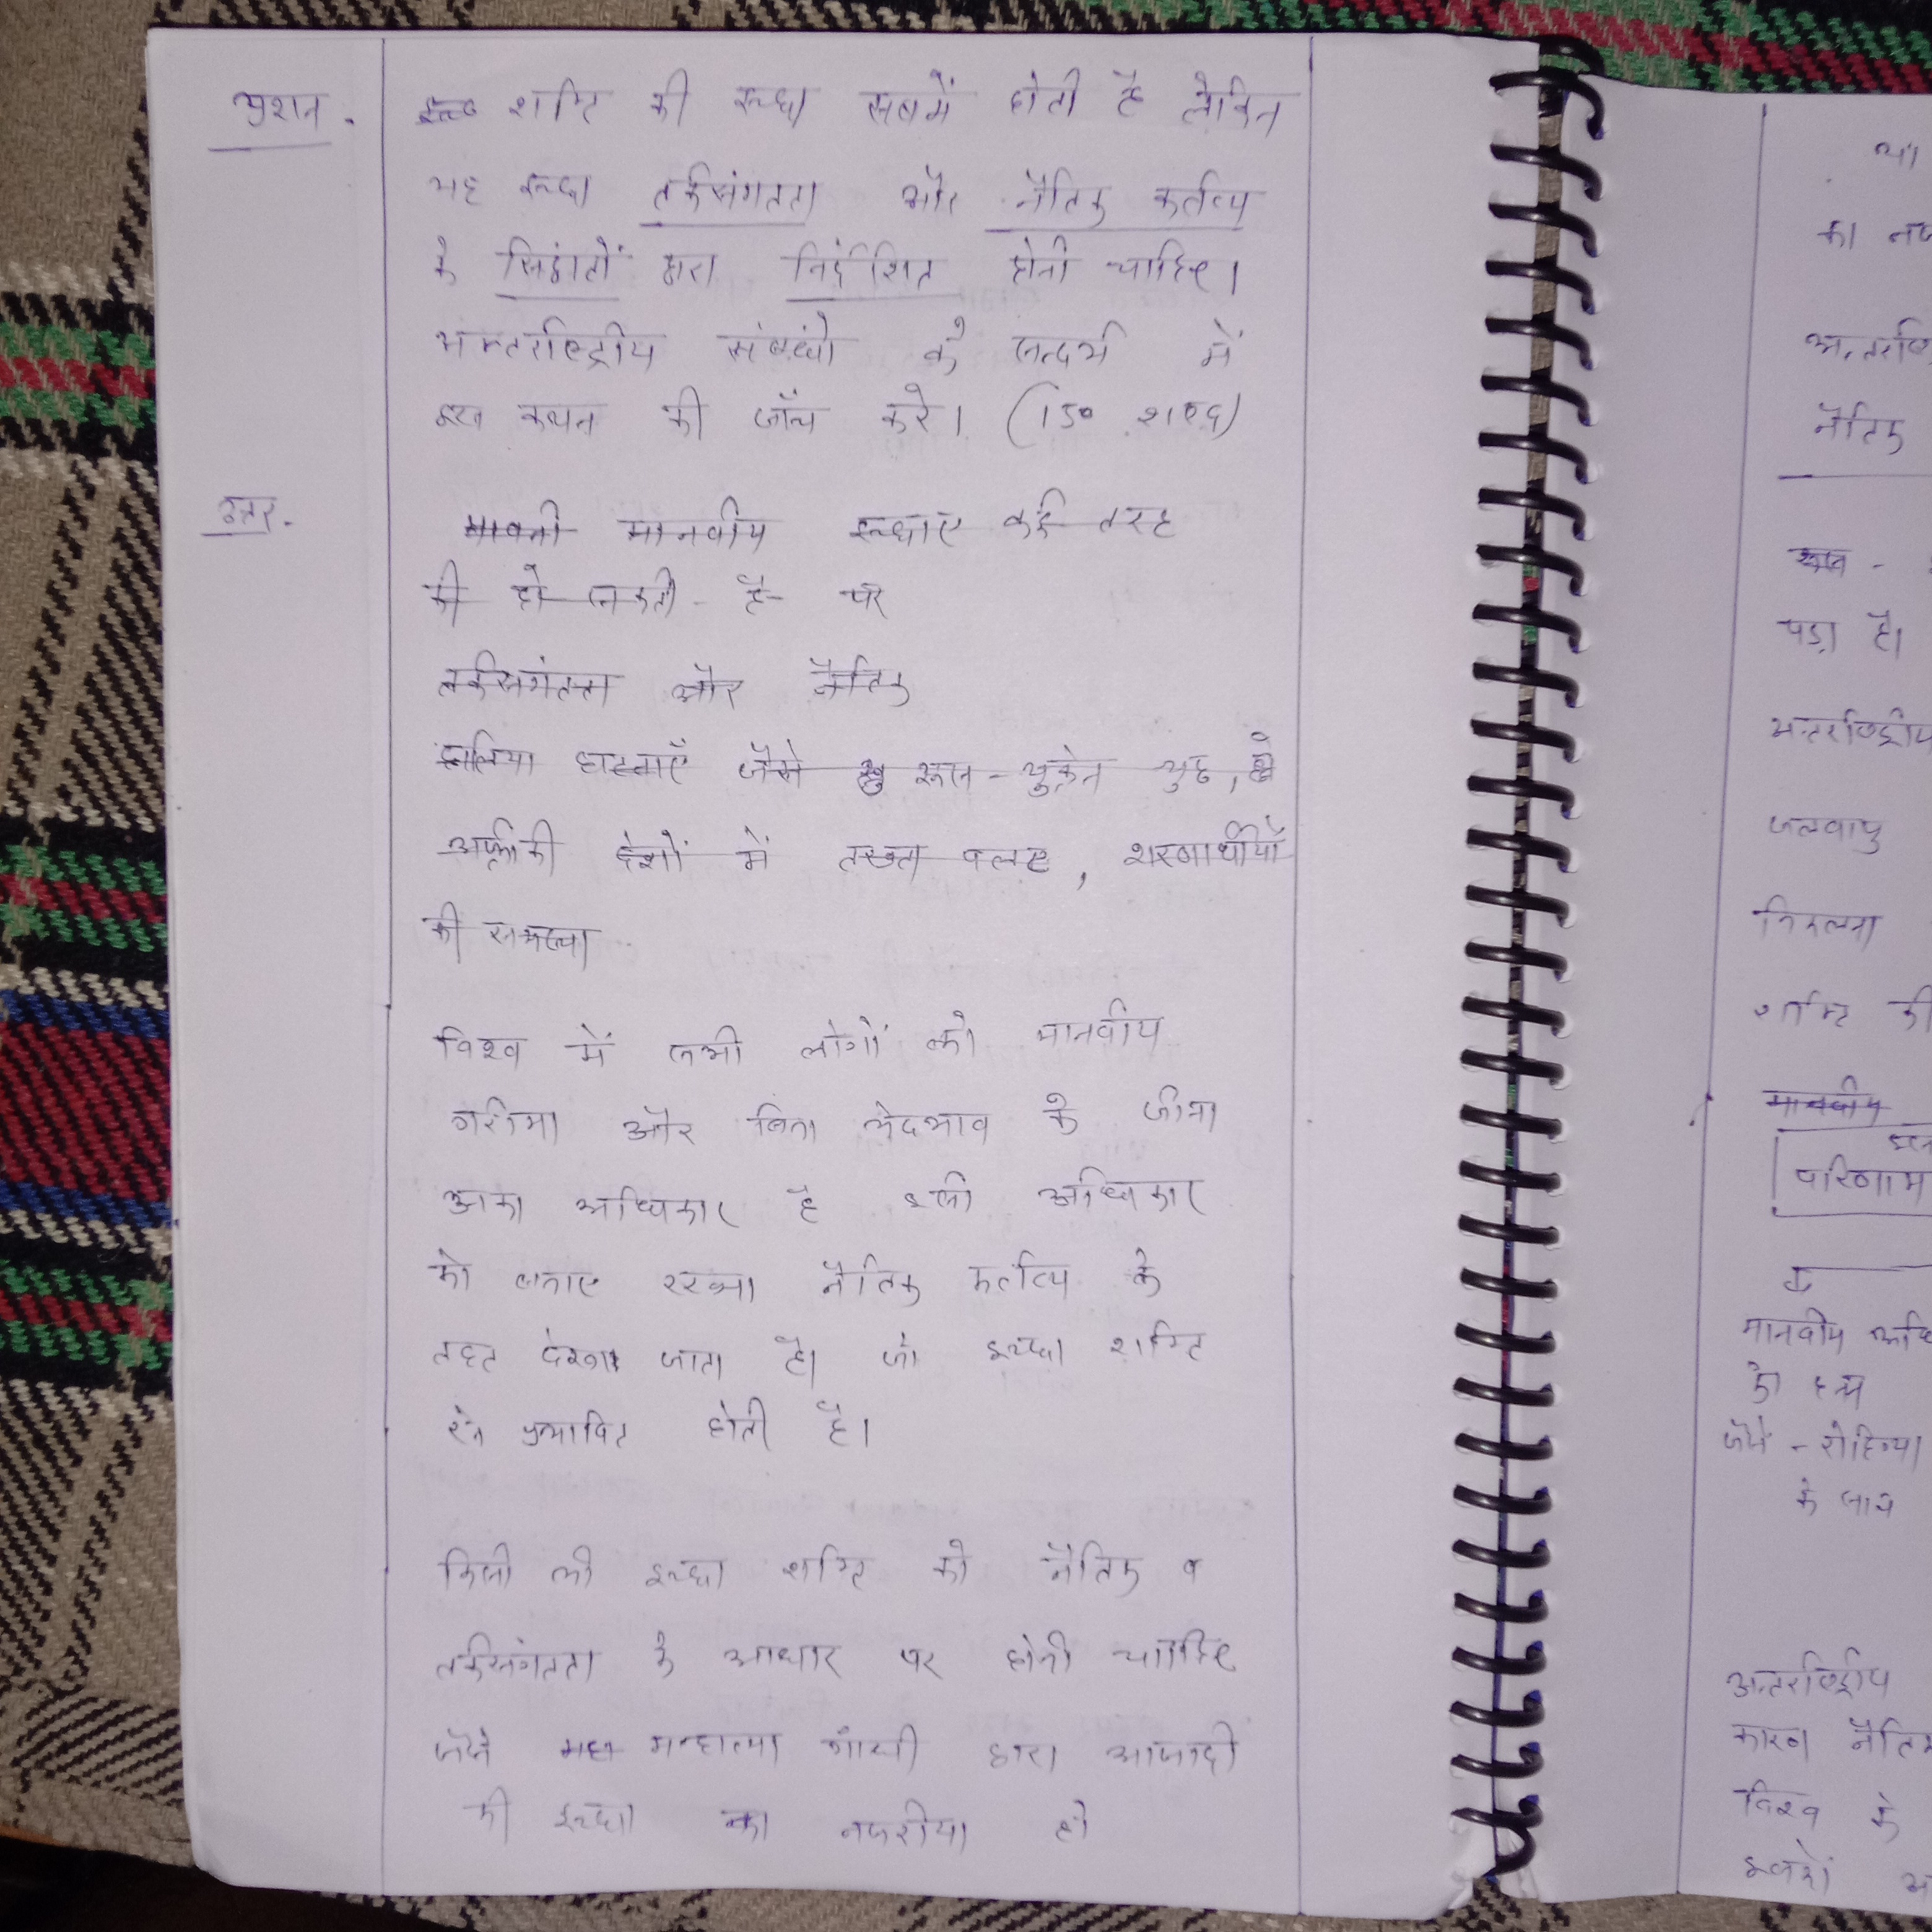 प्रशन.
शक्ति की इच्छा सबमें होती है लेकिन
यह इच्छा तर्कसंगतता और नैतिक कर्तव्य
के सिद्वांतों द्वारा निर्देशित होनी चाहिए।
अन्तर्राष्ट्रीय संबंधो के सन्दर्भ में
इस कथन की जाँच करे। (150 शब्द)
उत्तर.
मानवी मानवीय इच्छाए कई तरह
की हो सकती है पर
तर्कसगंतता और नैतिक
हालिया घटनाएँ जैसे रूस-युक्रेन युद्ध,
अफ्रीकी देशों में तख्ता पलट, शरणार्थीयों
की समस्या
विश्व में सभी लोगों को मानवीय
गरिमा और बिना भेदभाव के जीना
उनका अधिकार है इसी अधिकार
को बनाए रखना नैतिक कर्तव्य के
तहत देखा जाता है। जो इच्छा शक्ति
से प्रभावित होती है।
किसी की इच्छा शक्ति को नैतिक व
तर्कसंगतता के आधार पर होनी चाहिए
जैसे महा महात्मा गाँधी द्वारा आजादी
की इच्छा का नजरीया हो
था
का
नैतिक
पड़ा है।
जलवायु
निकलना
शक्ति की
मानवीय
परिणाम
मानवीय
को
जैसे - रोहिंग्या
के साथ
अन्तर्राष्ट्रीय
कारण
विश्व के